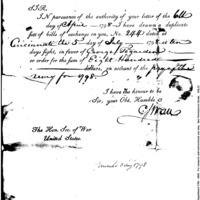 SIR,
IN pursuance of the authority of your letter of the 6th
day of April 1798 I have drawn a duplicate
set of bills of exchange on you, No. 244 dated at
Cincinnati the 5 day of July 1798 at ten
days sight, in favor of George
or order for the sum of Eight Hundred
dollars, on account of the Pay of the
army for 1798.
I have the honour to be
Sir, your Obt. Humble
C Swan
The Hon. Sec of War
United States.
5 July 1798